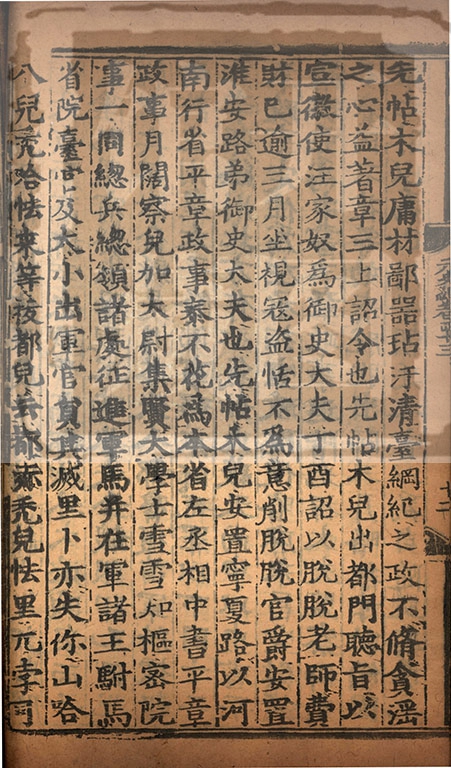 先帖木兒庸材鄙器玷汙清臺綱紀之政不脩貪淫
之心益著章三上詔令也先帖木兒出都門聽旨以
宣徽使汪家奴為御史大夫丁酉詔以脫脫老師費
財已逾三月坐視寇盜恬不為意削脫脫官爵安置
淮安路弟御史大夫也先帖木兒安置寧夏路以河
南行省平章政事泰不花為本省左丞相中書平章
政事月闊察兒加太尉集賢大學士雪雪知樞密院
事一同總兵總領諸處征進軍馬并在軍諸王駙馬
省院臺官及大小出軍官員其滅里卜亦失你山哈
八兒禿哈怯來等拔都兒云都赤禿兒怯里兀孛可